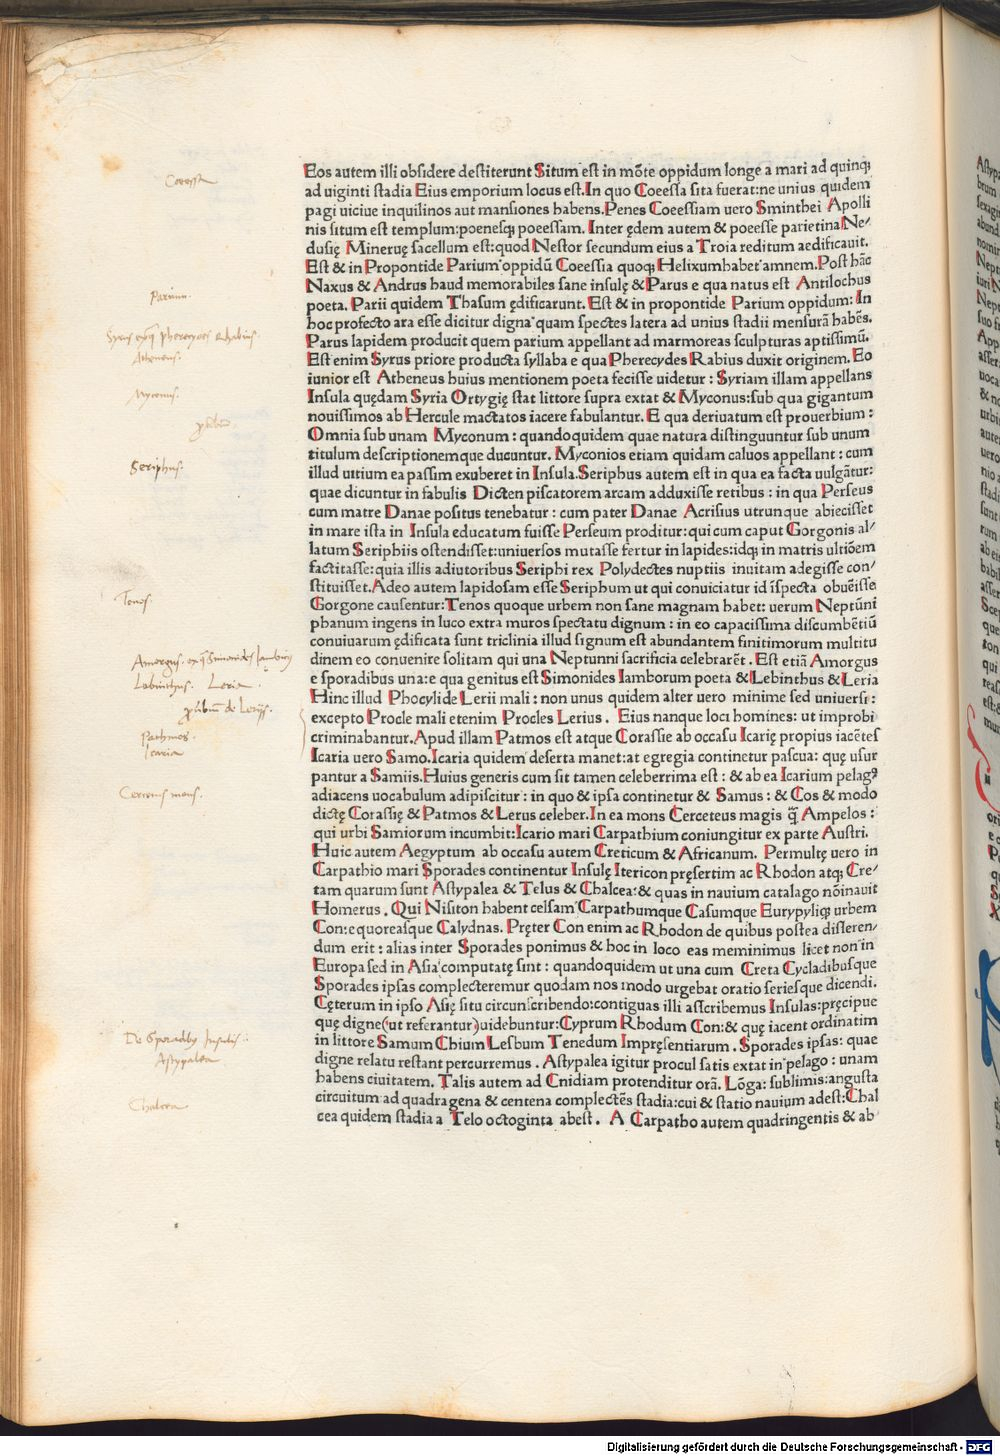 Eos autem illi obsidere destiterunt Situm est in mõte oppidum longe a mari ad quinqꝫ
ad uiginti stadia Eius emporium locus est.In quo Coeessa sita fuerat:ne unius quidem
pagi uiciue inquilinos aut mansiones habens.Penes Coeessiam uero Sminthei Apolli
nis situm est templum:poenesqꝫ poeessam. Inter ędem autem & poeesse parietina Ne/
dusię Mineruę sacellum est:quod Nestor secundum eius a Troia reditum aedificauit.
Est & in Propontide Parium oppidũ Coeessia quoqꝫ Helixum habet amnem.Post hãc
Naxus & Andrus haud memorabiles sane insulę & Parus e qua natus est Antilochus
poeta. Parii quidem Thasum ędificarunt. Est & in propontide Parium oppidum: In
hoc profecto ara esse dicitur digna quam spectes latera ad unius stadii mensurã habẽs.
Parus lapidem producit quem parium appellant ad marmoreas sculpturas aptissimũ.
Est enim Syrus priore producta syllaba e qua Pherecydes Rabius duxit originem. Eo
iunior est Atheneus huius mentionem poeta fecisse uidetur : Syriam illam appellans
Insula quędam Syria Ortygię stat littore supra extat & Myconus:sub qua gigantum
nouissimos ab Hercule mactatos iacere fabulantur. E qua deriuatum est prouerbium :
Omnia sub unam Myconum : quandoquidem quae natura distinguuntur sub unum
titulum descriptionemque ducuntur. Myconios etiam quidam caluos appellant : cum
illud uitium ea passim exuberet in Insula.Seriphus autem est in qua ea facta uulgãtur:
quae dicuntur in fabulis Dicten piscatorem arcam adduxisse retibus : in qua Perseus
cum matre Danae positus tenebatur : cum pater Danae Acrisius utrunque abiecisset
in mare ista in Insula educatum fuisse Perseum proditur:qui cum caput Gorgonis al/
latum Seriphiis ostendisset:uniuersos mutasse fertur in lapides:idqꝫ in matris ultiõem
factitasse:quia illis adiutoribus Seriphi rex Polydectes nuptiis inuitam adegisse con/
stituisset.Adeo autem lapidosam esse Seriphum ut qui conuiciatur id ĩspecta obuẽisse
Gorgone causentur:Tenos quoque urbem non sane magnam habet: uerum Neptũni
phanum ingens in luco extra muros spectatu dignum : in eo capacissima discumbẽtiũ
conuiuarum ędificata sunt triclinia illud signum est abundantem finitimorum multitu
dinem eo conuenire solitam qui una Neptunni sacrificia celebrarẽt. Est etiã Amorgus
e sporadibus una:e qua genitus est Simonides Iamborum poeta & Lebinthus & Leria
Hinc illud Phocylide Lerii mali : non unus quidem alter uero minime sed uniuersi:
excepto Procle mali etenim Procles Lerius. Eius nanque loci homines: ut improbi
criminabantur.Apud illam Patmos est atque Corassie ab occasu Icarię propius iacẽtes
Icaria uero Samo.Icaria quidem deserta manet:at egregia continetur pascua: quę usur
pantur a Samiis.Huius generis cum sit tamen celeberrima est : & ab ea Icarium pelagꝰ
adiacens uocabulum adipiscitur : in quo & ipsa continetur & Samus : & Cos & modo
dictę Corassię & Patmos & Lerus celeber.In ea mons Cerceteus magis q̃ Ampelos :
qui urbi Samiorum incumbit:Icario mari Carpathium coniungitur ex parte Austri.
Huic autem Aegyptum ab occasu autem Creticum & Africanum. Permultę uero in
Carpathio mari Sporades continentur Insulę Itericon pręsertim ac Rhodon atqꝫ Cre/
tam quarum sunt Astypalea & Telus & Chalcea:& quas in nauium catalago nõinauit
Homerus. Qui Nisiton habent celsam Carpathumque Casumque Eurypyliqꝫ urbem
Con:equoreasque Calydnas. Pręter Con enim ac Rhodon de quibus postea disseren/
dum erit : alias inter Sporades ponimus & hoc in loco eas meminimus licet non in
Europa sed in Asia computatę sint : quandoquidem ut una cum Creta Cycladibusque
Sporades ipsas complecteremur quodam nos modo urgebat oratio seriesque dicendi.
Cęterum in ipso Asię situ circunscribendo:contiguas illi ascribemus Insulas:pręcipue
quę digne(ut referantur)uidebuntur:Cyprum Rhodum Con:& quę iacent ordinatim
in littore Samum Chium Lesbum Tenedum Impręsentiarum. Sporades ipsas: quae
digne relatu restant percurremus. Astypalea igitur procul satis extat in pelago : unam
habens ciuitatem. Talis autem ad Cnidiam protenditur orã. Lõga: sublimis:angusta
circuitum ad quadragena & centena complectẽs stadia:cui & statio nauium adest:Chal
cea quidem stadia a Telo octoginta abest. A Carpatho autem quadringentis & ab
Coeessa
Parium.
Syrus exq̃ pherecydes Rhabius.
Atheneus.
Myconus.
Seriphus.
Tenos.
Amorgus. ex q̃ Simonides Iambicus
Lebinthus. Leria.
Pathmos.
Icaria
Cerceteus mons.
De Sporadibꝫ Insulis:
Astypalea
Chalcea
Digitalisierung gefördert durch die Deutsche Forschungsgemeinschaft - DFG